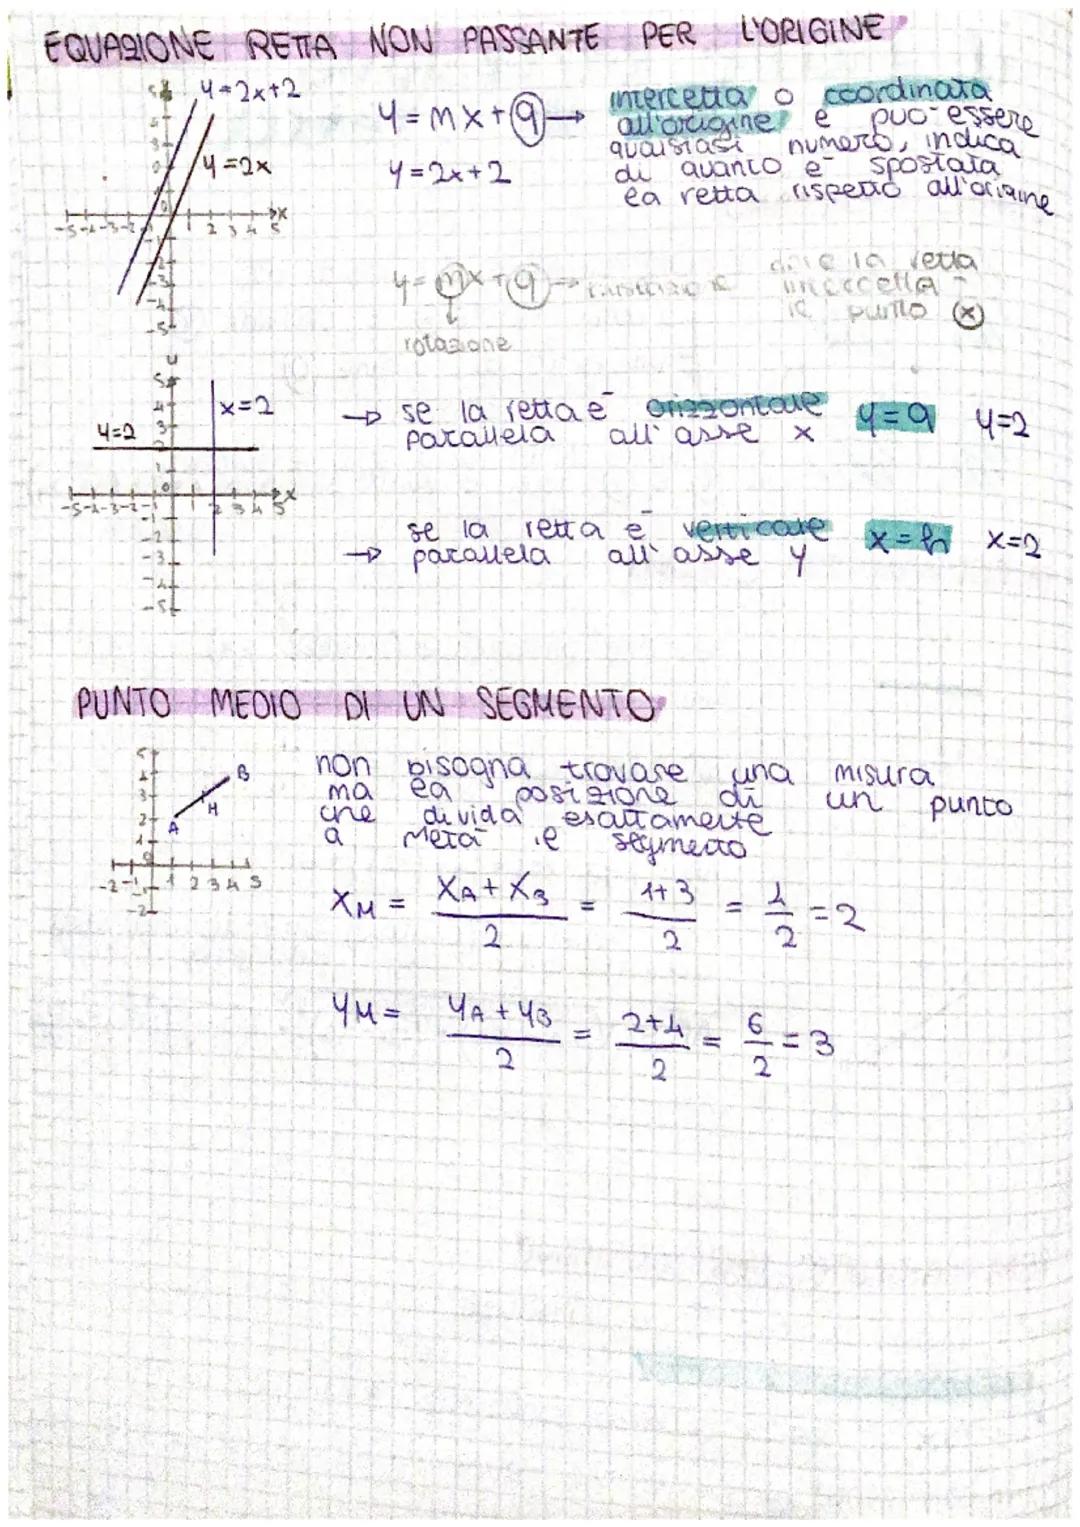 EQUAZIONE RETTA NON PASSANTE PER L'ORIGINE
y=2x+2
y=2x
y=mx+q → intercetta o coordinata
all'origine e può essere
qualsiasi numero, indica
di quanto è spostata
la retta rispetto all'origine
y=2x+2
x
-5 -4 -3 -2 1 2 3 4 5
y=mx+q → la retta
intercetta
il punto x
rotazione
y=2
x=2
→ se la retta è orizzontale y=q y=2
parallela all'asse x
x
-5 -4 -3 -2 -1 1 2 3 4 5
→ se la retta è verticale x=h x=2
parallela all'asse y
PUNTO MEDIO DI UN SEGMENTO
A M B
-2 -1 1 2 3 4 5
non bisogna trovare una misura
ma la posizione di un punto
che divida esattamente
a metà il segmento
xM = xA+xB/2 = 1+3/2 = 4/2 = 2
yM = yA+yB/2 = 2+4/2 = 6/2 = 3